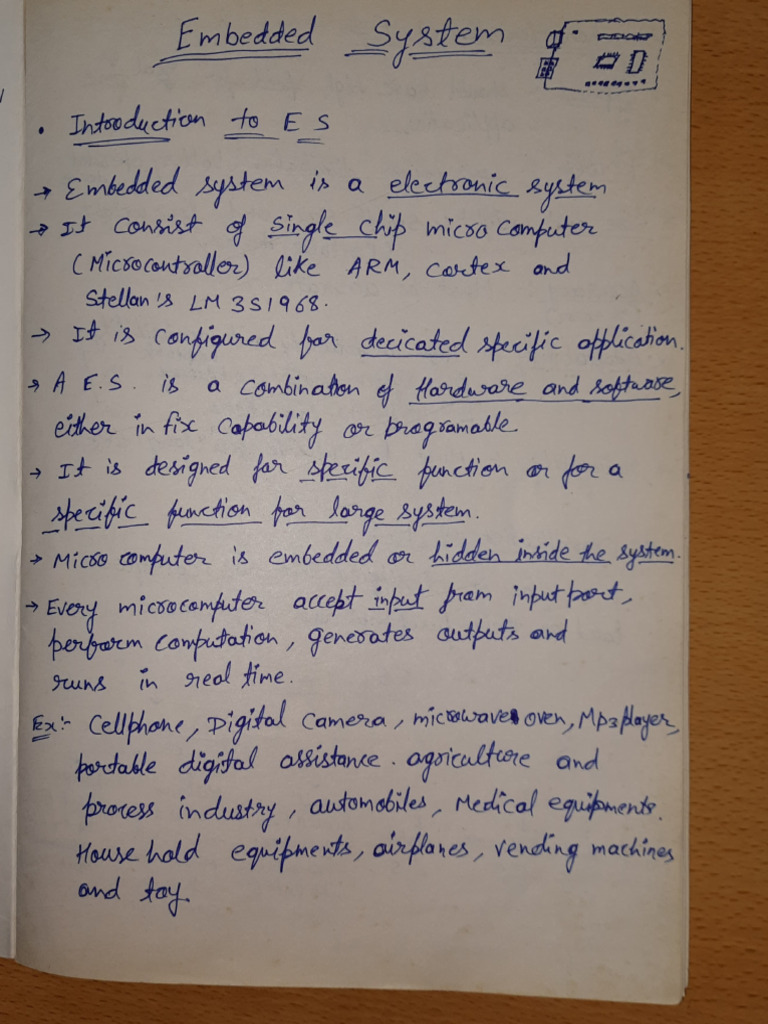 Embedded System
• Introduction to E S
→ Embedded system is a electronic system
→ It consist of single chip micro computer
(Microcontroller) like ARM, cortex and
Stellan's LM 3S1968.
→ It is configured for decicated specific application.
→ A E.S. is a combination of Hardware and software,
either in fix capability or programable
→ It is designed for specific function or for a
specific function for large system.
→ Micro computer is embedded or hidden inside the system.
→ Every microcomputer accept input from input port,
perform computation, generates outputs and
runs in real time.
Ex:- Cellphone, Digital Camera, microwave oven, Mp3 player,
portable digital assistance. agriculture and
process industry, automobiles, Medical equipments.
House hold equipments, airplanes, vending machines
and toy.